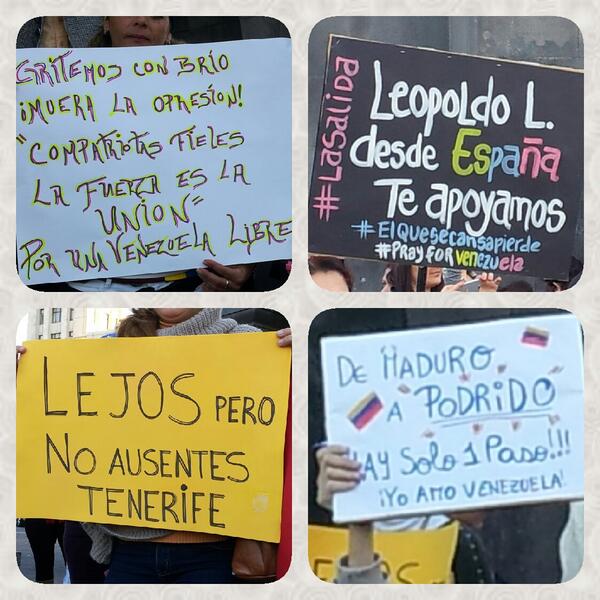 GRITEMOS CON BRÍO
¡MUERA LA OPRESIÓN!
"COMPATRIOTAS FIELES
LA FUERZA ES LA
UNIÓN"
POR UNA VENEZUELA LIBRE
#LaSalida
Leopoldo L.
desde España
Te apoyamos
#ElQueSecansapierde
#PRAYFORvenezuela
LEJOS PERO
NO AUSENTES
TENERIFE
DE MADURO
A PODRIDO
HAY Solo 1 Paso!!!
¡YO AMO VENEZUELA!